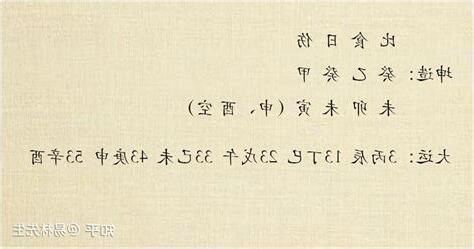 比 食 日 伤
坤造: 癸 乙 癸 甲
未 卯 未 寅 (申、酉空)
大运: 3丙辰 13丁巳 23戊午 33己未 43庚申 53辛酉
知乎 @易林先生